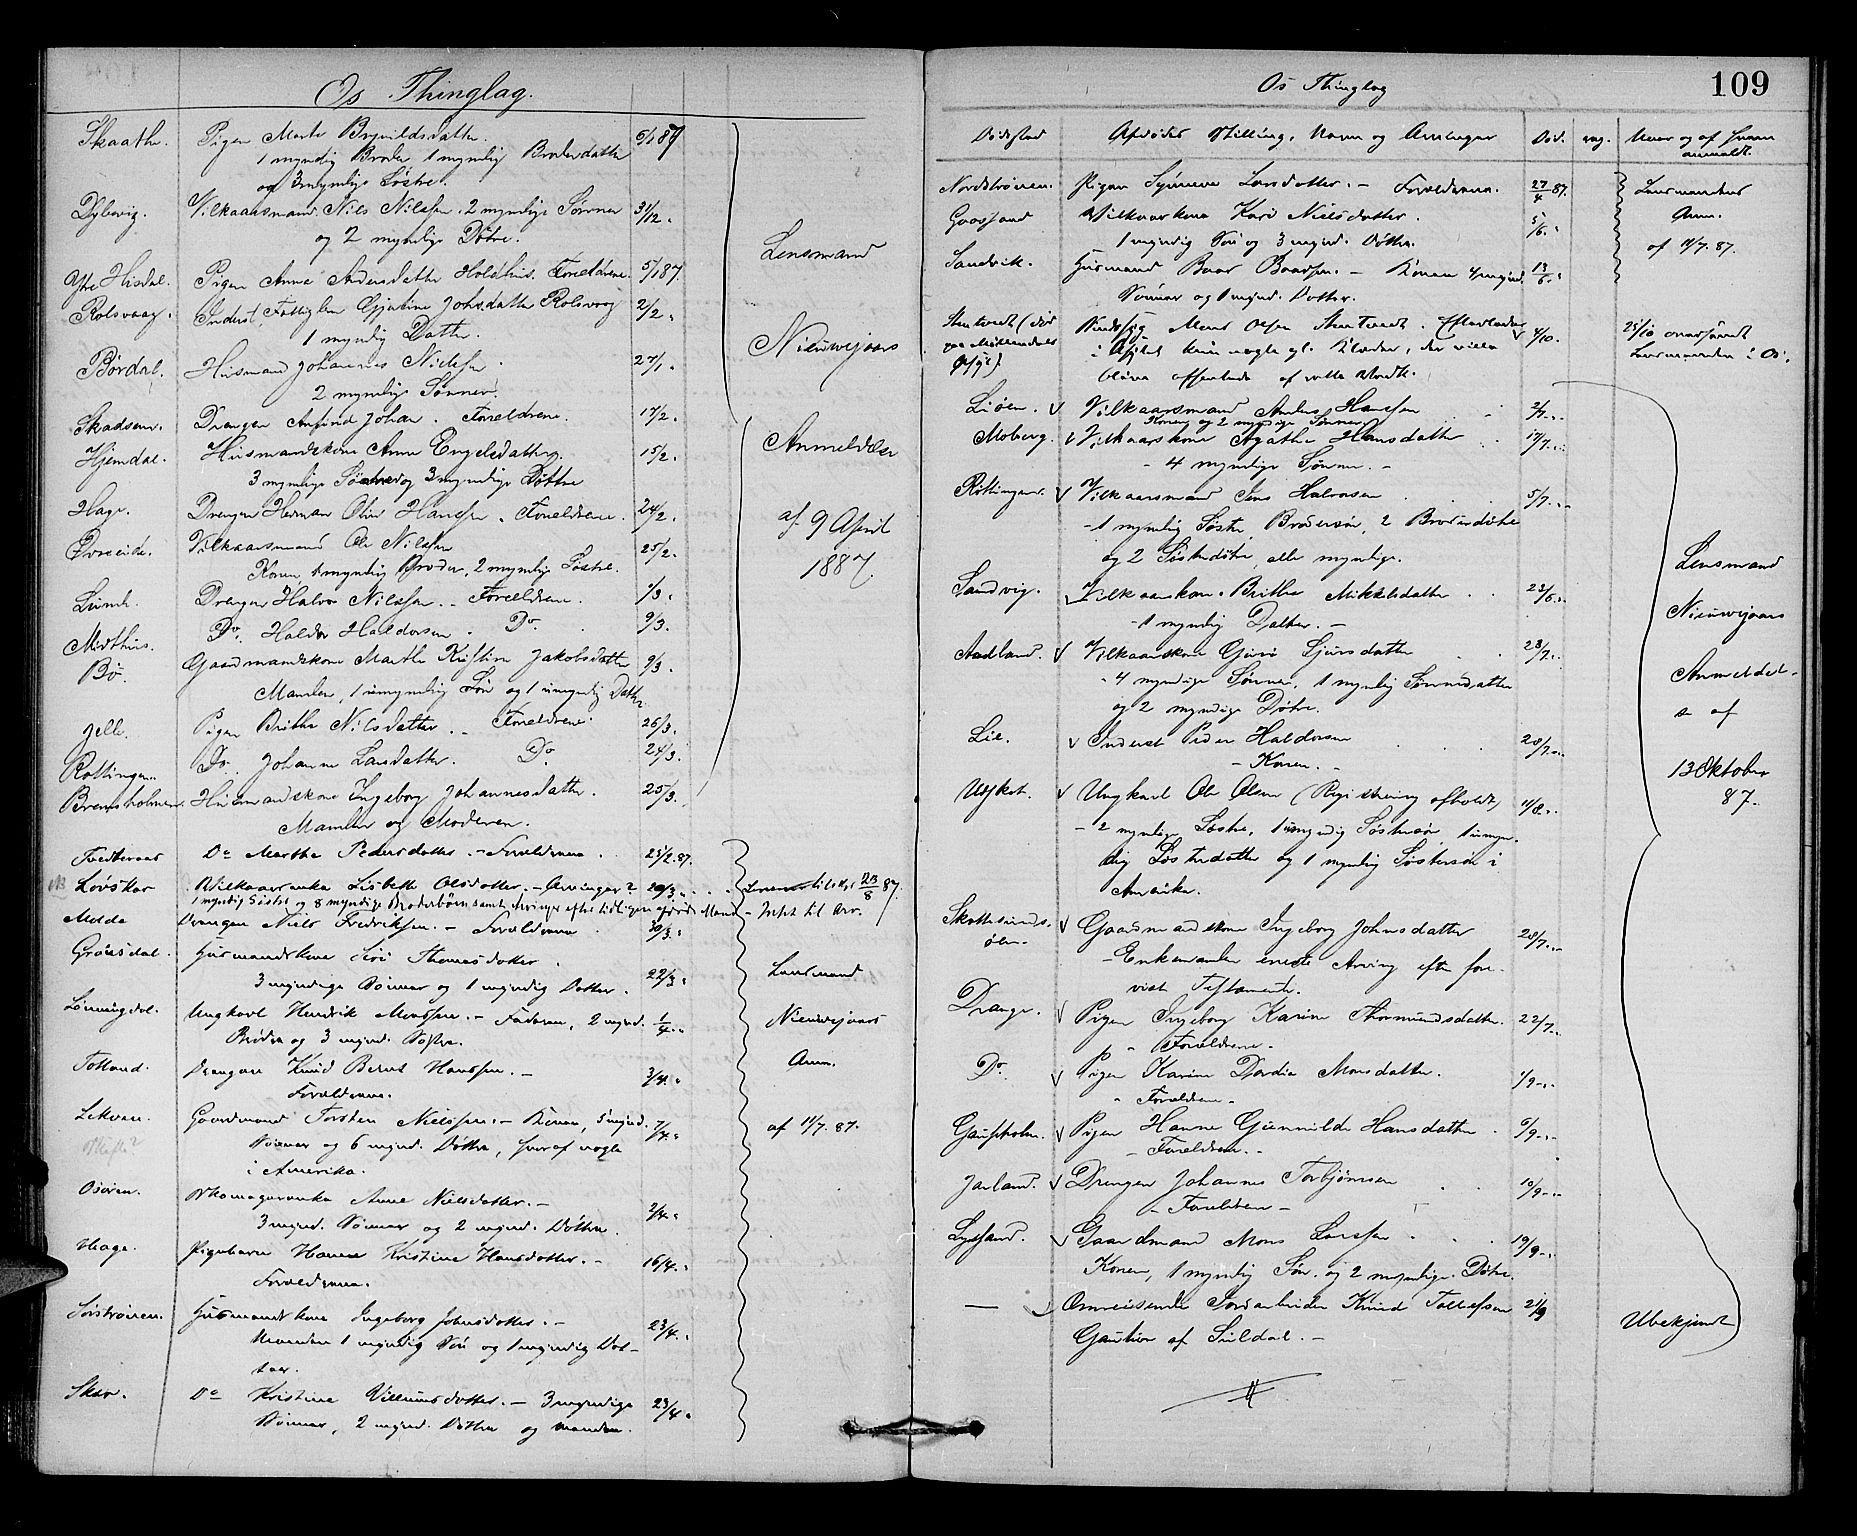 Os Thinglag.
Skaathe. Pigen Marte Brynildsdatter. 6/1 87
1 myndig Broder, 1 myndig Broderdatter
og 3 myndige Søstre.
Dybvig. Vilkaarsmand Nils Nilssen. 2 myndige Sønner 31/12 "
og 2 myndige Døtre.
Lensmand
Ytre Hisdal. Pigen Anne Andersdatter Holdhus. Forældrene. 5/1 87.
Rolsvaag. Inderst, Fattiglem Gjertine Johnsdatter Rolsvaag 2/2 "
1 myndig Datter.
Nieuwejaars
Børdal. Husmand Johannes Nielssen. 27/1 "
2 myndige Sønner.
Skadsem. Drengen Johan. Forældrene. 17/2 "
Anmeldelse
Hjemdal. Husmandskone Anna Engelsdatter 15/2 "
3 myndige Sønner og 3 myndige Døttre
Hage. Drengen Herman Olai Hanssen. Forældrene. 24/2 "
af 9 April
Vilkaarsmand Ole Nilssen 25/2 "
Konen, 1 myndig Broder, 2 myndige Søstre.
1887.
Lunde. Drengen Halvor Nilssen. - Forældrene. 1/3 "
Midthus. Do. Haldor Haldorsen. Do. 9/3 "
Bø. Gaardmandskone Marthe Kristine Jakobsdatter 9/3 "
Manden, 1 umyndig Søn og 1 umyndig Datter.
Jelle. Pigen Brithe Nilsdatter. - Forældrene. 26/3 "
Røttingen. Do. Johanne Larsdatter. Do 24/3 "
Bremsholmen. Husmandskone Ingeborg Johannesdatter. 25/3 "
Manden og Moderen.
Tvedteraas Do Marthe Pedersdatter. - Forældrene. 25/2 87.
NB Lovskar Vilkaarsenke Lisbeth Olsdatter. - Arvinger? 20/3 " 23/8 87.
1 myndig Søster og 8 myndige Broderbørn samt Arvinger efter tidligere afdøde Mand - Intet til Arv.
Molde Drengen Niels Fredriksen. - Forældrene 30/3 "
Grønsdal. Husmandskone Siri Thomasdatter. 22/3 "
3 myndige Sønner og 1 myndig Datter.
Lensmand
Lønningdal. Ungkarl Hendrik Monssen. - Faderen, 2 mynd. 1/4 "
Brødre og 3 mynd. Søstre.
Nieuwejaars
Tøtland. Drengen Knud Bernt Hanssen. - 3/4 "
Forældrene.
Anm.
Lekven. Gaardmand Torsten Nielssen. - Konen, 5 mynd. 7/4 "
Sønner og 6 mynd. Døttre, hvoraf nogle
i Amerika.
af 11/7. 87.
Skifte?
Osøren. Skomagerenke Anne Nielsdatter. - 2/4 "
3 mynd. Sønner og 2 mynd. Døttre.
Hage. Pigebarn Hanna Kristine Hansdatter. - 16/4 "
Forældrene.
Sørstrønen. Husmandskone Ingeborg Johnsdatter. - 23/4 "
Manden 1 myndig Søn og 1 myndig Dat-
ter.
Skar. Do Kristine Villumsdatter. - 3 myndige 23/4 "
Sønner, 2 mynd. Døttre og manden.
Os Thinglag 109
Dødsstad Afdødes Stilling, Navn og Arvinger Død. Naar og af hvem
anmeldt.
Nordstrønen. Pigen Synneve Larsdatter. - Forældrene. 27/4 87. Lensmandens
Gaassand Vilkaarskone Kari Nielsdatter. 5/6 " Anm.
1 myndig Søn og 3 mynd. Døttre.
af 11/7. 87.
Sandvik. Husmand Baar Baarsen. - Konen 4 mynd. 13/6 "
Sønner og 1 mynd. Datter.
Stentvedt (død Mons Olsen Stentvedt. Efterlader 4/10. 25/10 oversendt
paa Møllendals
Asyl). i Asylet kun nogle gl. Klæder, der ville
Lensmanden i Os.
blive
Liøen. √ Vilkaarsmand Anders Hanssen 2/7 "
Konen og 2 myndige Sønner
Moberg. √ Vilkaarskone Agathe Hansdatter 17/7 "
- 4 myndige Sønner. -
Røttingen. √ Vilkaarsmand Jens Halvorsen 5/7 "
- 1 myndig Søster, Brodersøn, 2 Broderdøtre
og 2 Søsterdøtre, alle myndige.
Lensmand
Sandvig. √ Vilkaarskone Brithe Mikkelsdatter 23/6 "
- 1 myndig Datter. -
Nieuwejaars
Aadland. √ Vilkaarskone Guro Sjursdatter 28/7 "
- 4 myndige Sønner, 1 myndig Sønnedatter
og 2 myndige Døtre.
Anmeldel-
se af
Lie. √ Inderst Peder Haldorsen 28/7 "
- Konen. -
13 Oktober
87.
√ Ungkarl Ole Olsen (Registrering afholdt) 11/8 "
- 2 myndige Søstre, 1 umyndig Søstersøn, 1 umyn-
dig Søsterdatter og 1 myndig Søstersøn i
Amerika.
Skottesunds-
øen. √ Gaardmandskone Ingeborg Johnsdatter 28/7 "
- Enkemanden eneste Arving efter fore-
vist Testamente.
Drange. √ Pigen Ingeborg Karine Aamundsdatter. 22/7 "
- Forældrene -
Do √ Pigen Karine Dordia Monsdatter. 1/9 "
- Forældrene -
Gaupholm. √ Pigen Hanne Gunnilde Hansdatter. 6/9 "
- Forældrene. -
Jarland. √ Drengen Johannes Torbjørnsen 10/9 "
- Forældrene -
Lyssand. √ Gaardmand Mons Larssen 19/9 "
Konen, 1 myndig Søn og 2 myndige Døtre.
— √ Omreisende Jordarbeider Knud Tollefsen 21/9
Gautun af Suldal. -
Ubekjendt